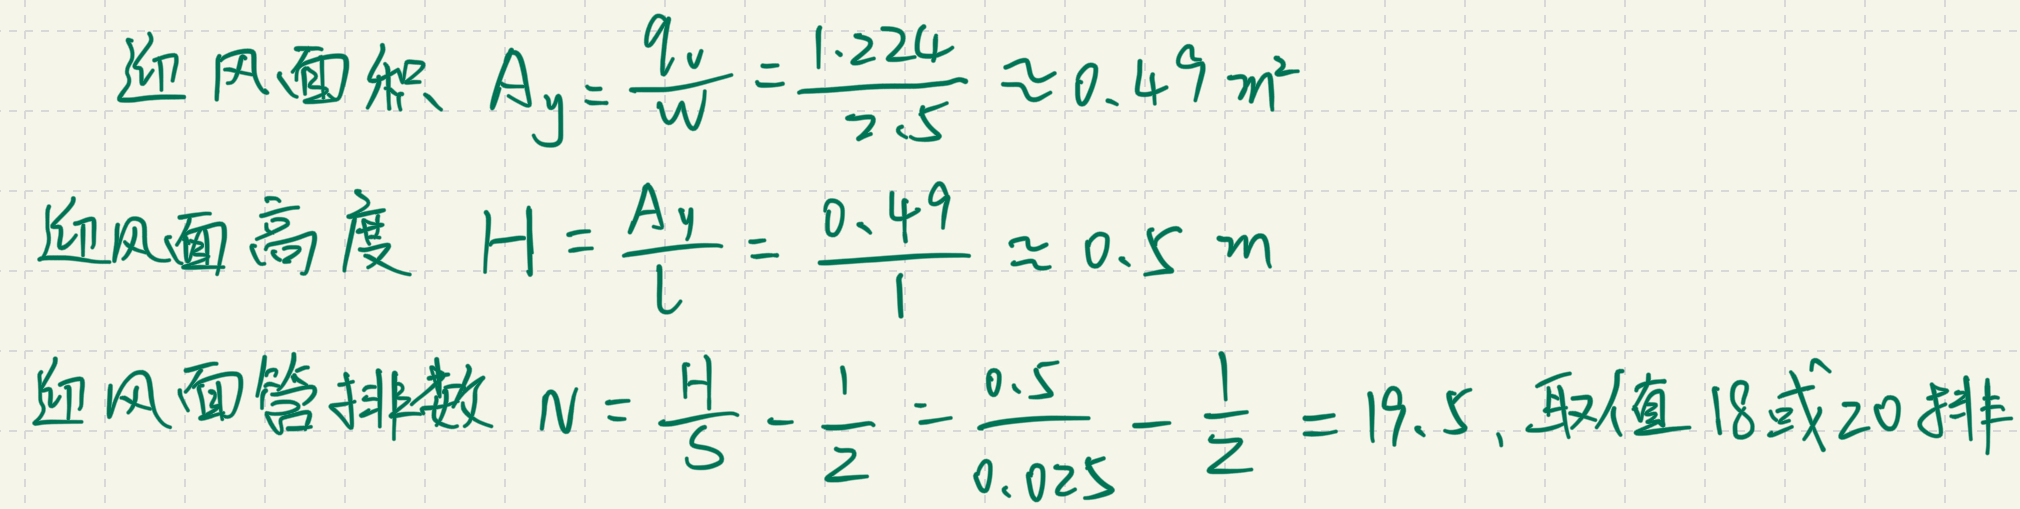 迎风面积 A_y = q_v / W = 1.224 / 2.5 ≈ 0.49 m²
迎风面高度 H = A_y / l = 0.49 / 1 ≈ 0.5 m
迎风面管排数 N = H / S - 1 / 2 = 0.5 / 0.025 - 1 / 2 = 19.5, 取值 18或20排